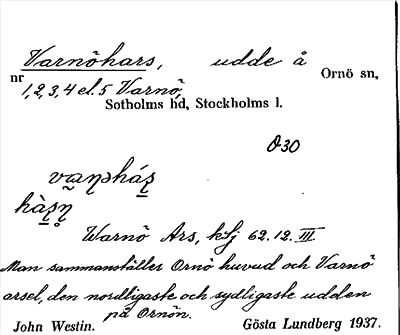 Varnöhars, udde å Ornö sn,
nr 1, 2, 3, 4 el. 5 Varnö,
Sotholms hd, Stockholms l.
O30
Warnö Ars, ksj 62.12.III
Man sammanställer Ornö huvud och Varnö
arsel, den nordligaste och sydligaste udden
på Ornön.
John Westin. Gösta Lundberg 1937.